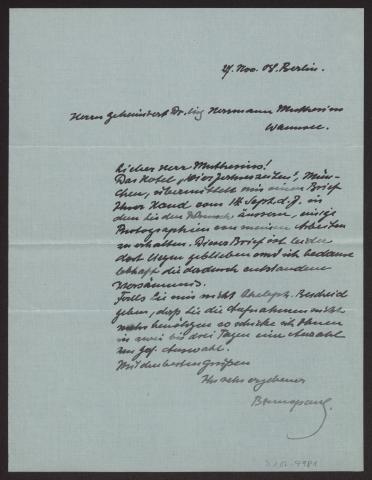 27. Nov. 08. Berlin.
Herrn Geheimrat Dr. ing Herrmann Muthesius
Wannsee.
Lieber Herr Muthesius!
Das Hotel „Vier Jahreszeiten", Mün-
chen, übermittelt mir einen Brief
Ihrer Hand vom 18. Sept. d. J. in
dem Sie den Wunsch äussern, einige
Photographien von meinen Arbeiten
zu erhalten. Dieser Brief ist leider
dort liegen geblieben und ich bedaure
lebhaft die dadurch entstandene
Versäumnis.
Falls Sie mir nicht Bescheid
geben, daß Sie die Aufnahmen nicht
mehr benötigen so schicke ich Ihnen
in zwei bis drei Tagen eine Anzahl
zur gef. Auswahl.
Mit den besten Grüßen
Ihr sehr ergebener
Bruno Paul.